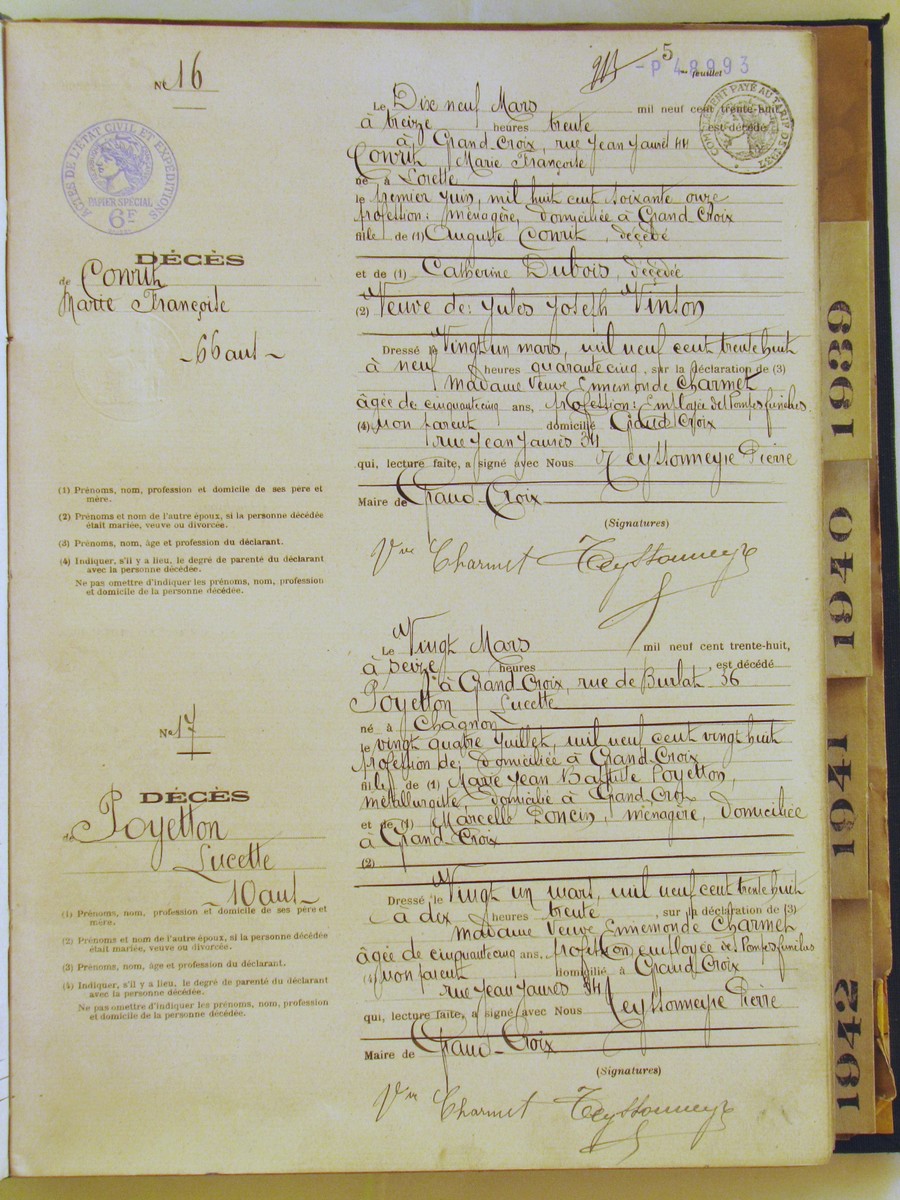 5
me feuillet
-P 48993
No 16
ACTES DE L'ÉTAT CIVIL ET EXPÉDITIONS
PAPIER SPÉCIAL
6F
COMPLÉMENT PAYÉ AU TARIF DE 1937
DÉCÈS
de Conrit
Marie Françoise
66 ans
(1) Prénoms, nom, profession et domicile de ses père et
mère.
(2) Prénoms et nom de l'autre époux, si la personne décédée
était mariée, veuve ou divorcée.
(3) Prénoms, nom, âge et profession du déclarant.
(4) Indiquer, s'il y a lieu, le degré de parenté du déclarant
avec la personne décédée.
Ne pas omettre d'indiquer les prénoms, nom, profession
et domicile de la personne décédée.
Le Dix neuf Mars mil neuf cent trente-huit
à treize heures trente est décédé
à Grand-Croix, rue Jean Jaurès 44
Conrit Marie Françoise
né à Lorette
le premier Juin, mil huit cent soixante onze
profession: ménagère, domiciliée à Grand Croix
fille de (1) Auguste Conrit, décédé
et de (1) Catherine Dubois, décédée
(2) Veuve de: Jules Joseph Vinson
Dressé le Vingt un mars, mil neuf cent trente huit
à neuf heures quarante cinq, sur la déclaration de (3)
Madame Veuve Ennemonde Charmet
âgée de cinquante cinq ans, profession: Employée des Pompes funèbres
(4) non parent domicilié Grand Croix
rue Jean Jaurès 34
qui, lecture faite, a signé avec Nous Teyssonneyre Pierre
Maire de Grand-Croix
(Signatures)
Vve Charmet Teyssonneyre
No 17
DÉCÈS
de Poyetton
Lucette
10 ans
(1) Prénoms, nom, profession et domicile de ses père et
mère.
(2) Prénoms et nom de l'autre époux, si la personne décédée
était mariée, veuve ou divorcée.
(3) Prénoms, nom, âge et profession du déclarant.
(4) Indiquer, s'il y a lieu, le degré de parenté du déclarant
avec la personne décédée.
Ne pas omettre d'indiquer les prénoms, nom, profession
et domicile de la personne décédée.
Le Vingt Mars mil neuf cent trente-huit,
à seize heures, est décédé
à Grand Croix, rue de Burlat 36
Poyetton Lucette
né à Chagnon
le vingt quatre Juillet, mil neuf cent vingt huit
profession de, domiciliée à Grand Croix
fille de (1) Marie Jean Baptiste Poyetton,
métallurgiste, domicilié à Grand Croix
et de (1) Marcelle Poncin, ménagère, domiciliée
à Grand Croix
(2)
Dressé le Vingt un mars, mil neuf cent trente huit
à dix heures trente, sur la déclaration de (3)
Madame Veuve Ennemonde Charmet
âgée de cinquante cinq ans, profession, employée des Pompes funèbres
(4) non parent domicilié à Grand Croix
rue Jean Jaurès 34
qui, lecture faite, a signé avec Nous Teyssonneyre Pierre
Maire de Grand-Croix
(Signatures)
Vve Charmet Teyssonneyre
1939
1940
1941
1942